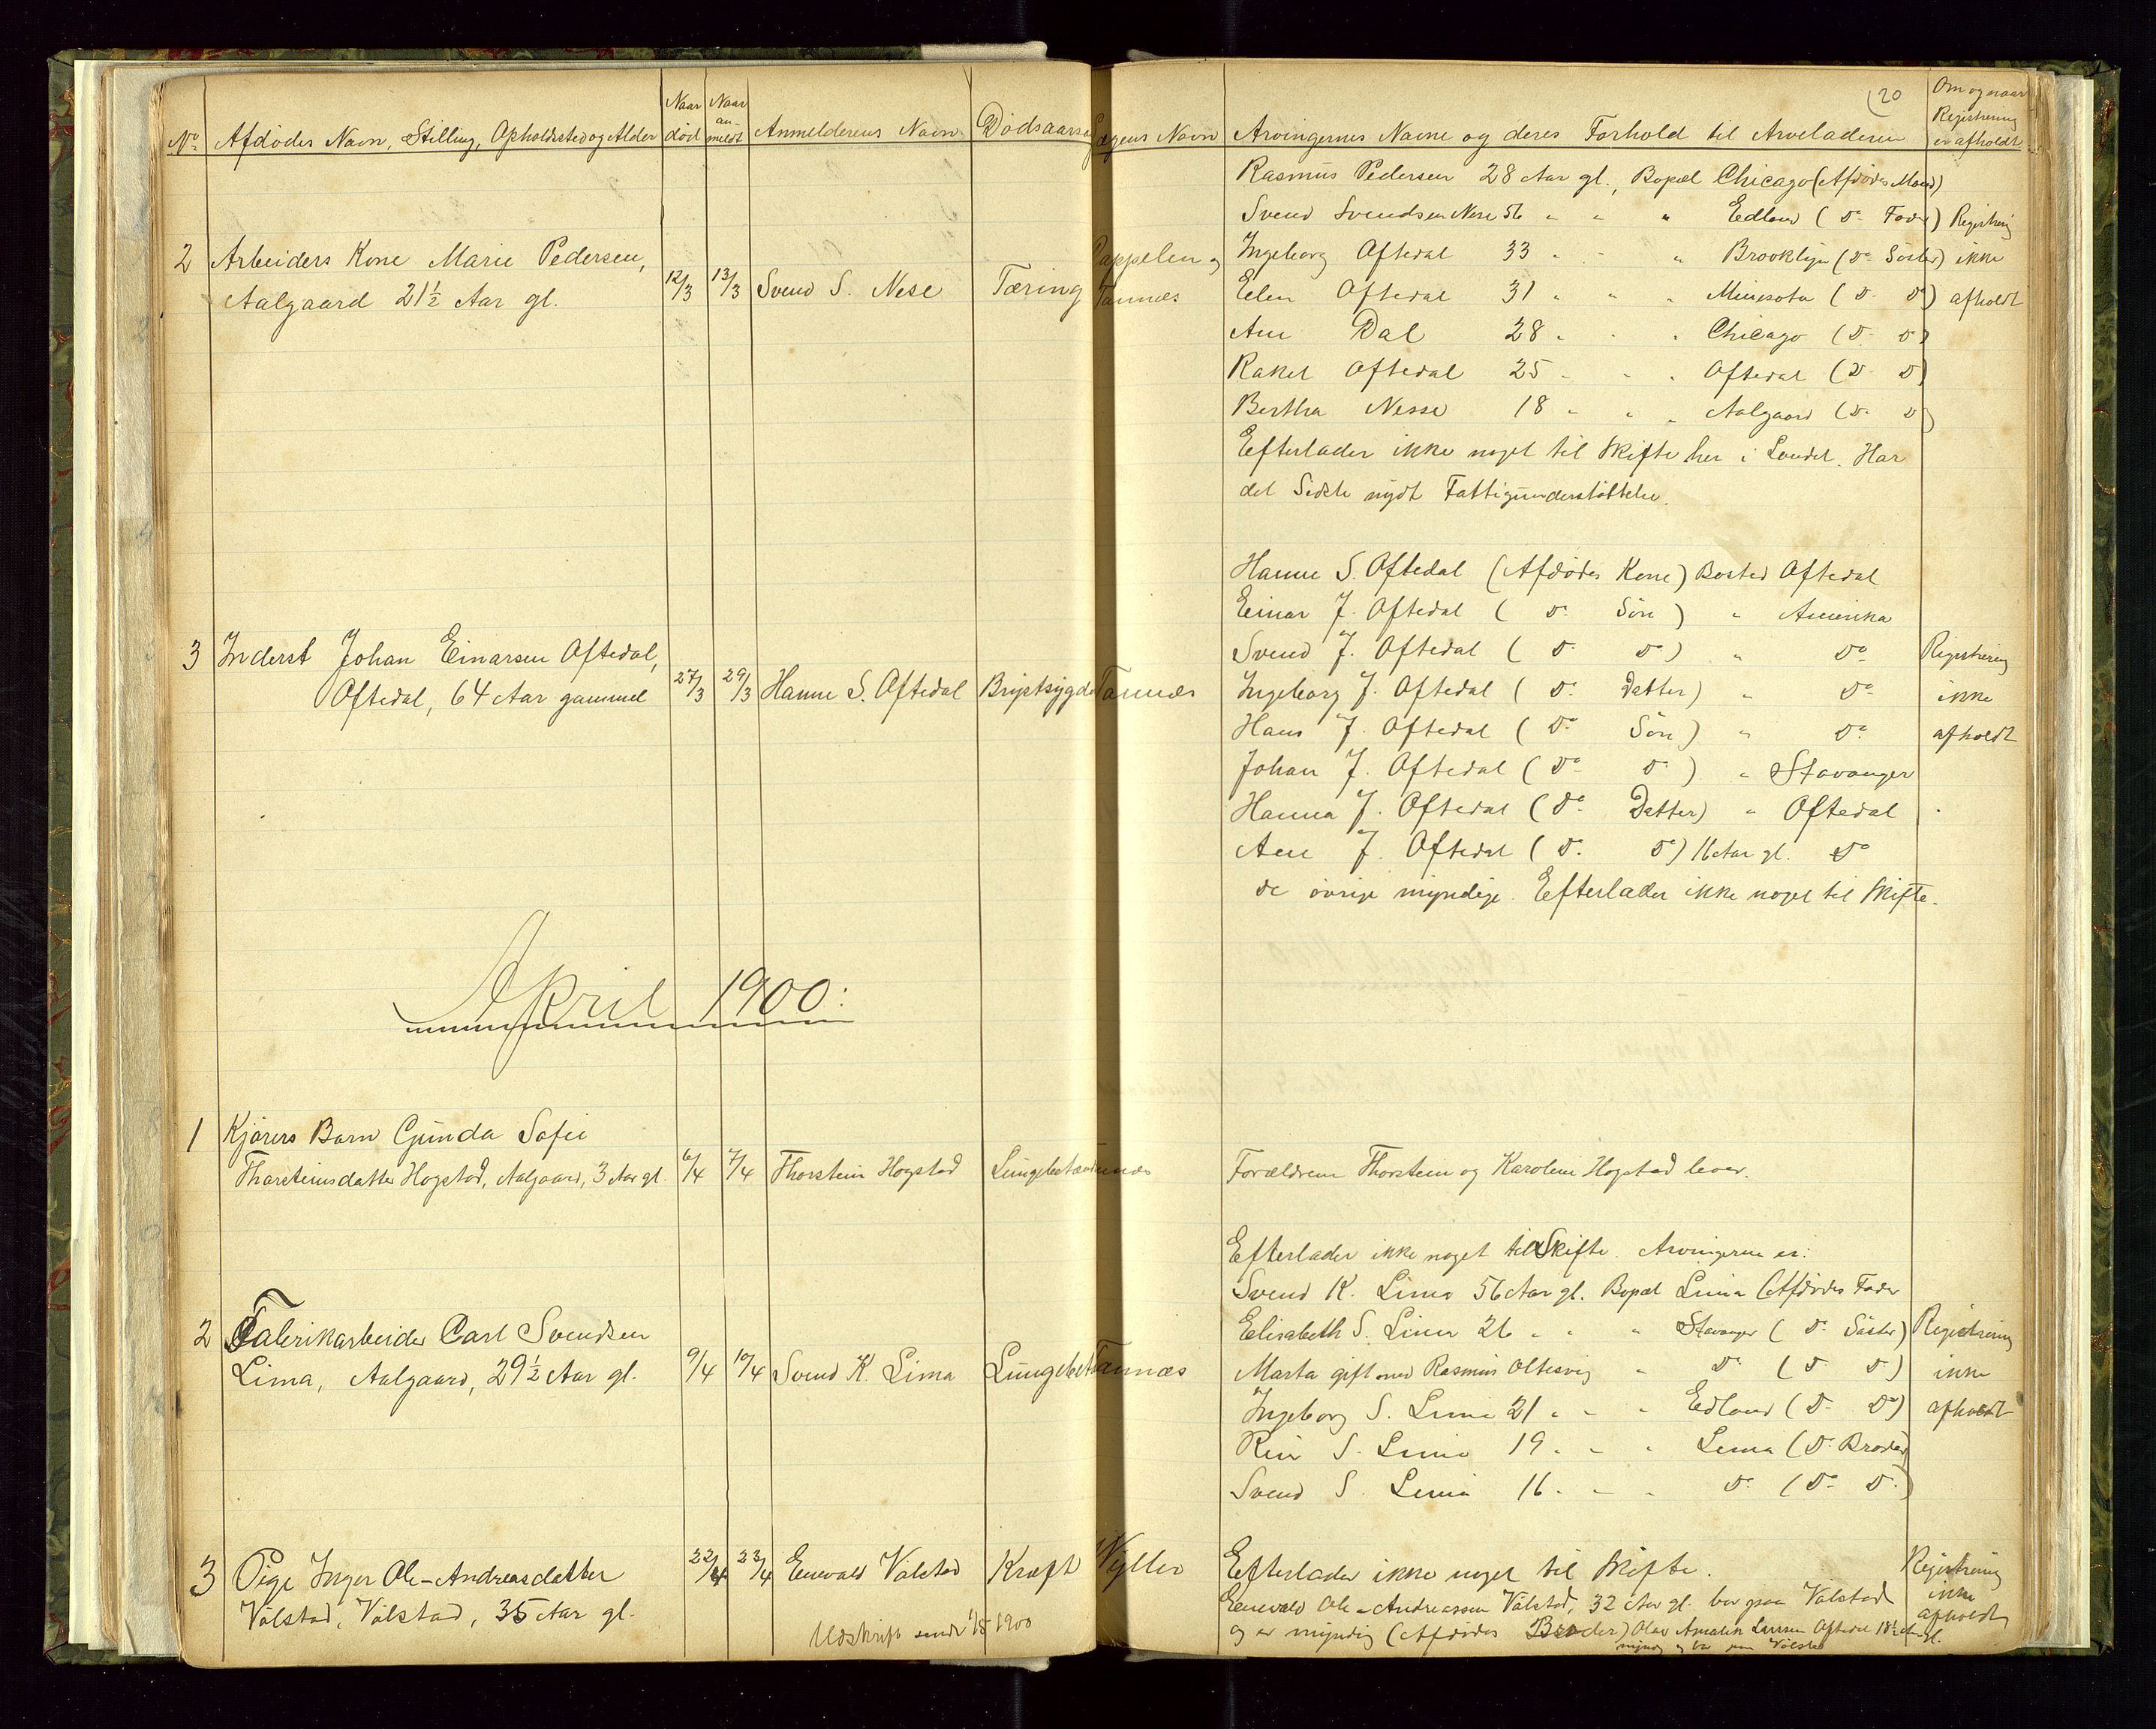 No Afdødes Navn, Stilling, Opholdssted og Alder Naar død Naar anmeldt Anmelderens Navn Dødsaarsag Lægens Navn
Arvingernes Navne og deres Forhold til Arveladeren
20
Om og naar Registrering er afholdt
2 Arbeiders Kone Marie Pedersen,
Aalgaard 21½ Aar gl. 12/3 13/3 Svend S. Nese Tæring Cappelen og Tannæs
Rasmus Pedersen 28 Aar gl., Bopæl Chicago (Afdødes Mand)
Svend Svendsen Nese 56 " " " Edland (Do Fader) Registrering
Ingeborg Oftedal 33 " " " Brooklyn (Do Søster) ikke
Elen Oftedal 31 " " " Minesota (Do Do) afholdt
Ane Dal 28 " " " Chicago (Do Do)
Rakel Oftedal 25 " " " Oftedal (Do Do)
Bertha Nesse 18 " " " Aalgaard (Do Do)
Efterlader ikke noget til Skifte her i Landet. Har
det Sidste nydt Fattigunderstøttelse.
3 Inderst Johan Einarsen Oftedal,
Oftedal, 64 Aar gammel 27/3 29/3 Hanne S. Oftedal Brystsygdom Tannæs
Hanne S. Oftedal (Afdødes Kone) Bosted Oftedal
Einar J. Oftedal (Do Søn) " Amerika
Svend J. Oftedal (Do Do) " Do Registrering
Ingeborg J. Oftedal (Do Datter) " Do ikke
Hans J. Oftedal (Do Søn) " Do afholdt
Johan J. Oftedal (Do Do) " Stavanger
Hanna J. Oftedal (Do Datter) " Oftedal
Ane J. Oftedal (Do Do) 16 Aar gl. Do
de øvrige myndige. Efterlader ikke noget til Skifte.
April 1900:
1 Kjørers Barn Gunda Sofie
Thorsteinsdatter Hogstad, Aalgaard, 3 Aar gl. 6/4 7/4 Thorstein Hogstad
Forældrene Thorstein og Karoline Hogstad lever.
2 Fabrikarbeider Carl Svendsen
Lima, Aalgaard, 29½ Aar gl. 9/4 10/4 Svend K. Lima Tannæs
Efterlader ikke noget til Skifte. Arvingerne er:
Svend K. Lima 56 Aar gl. Bopæl Lima (Afdødes Fader
Elisabeth S. Lima 26 " " " Stavanger (Do Søster) Registrering
Marta gift med Rasmus Oltesvig " Do (Do Do) ikke
Ingeborg S. Lima 21 " " " Edland (Do Do) afholdt
S. Lima 19 " " " Lima (Do Broder)
Svend S. Lima 16 " " " Do (Do Do)
3 Pige Inger Ole-Andreasdatter
Vølstad, Vølstad, 35 Aar gl. 22/4 23/4 Enevald Vølstad Kræft
Udskrift sendt 1/5 1900
Efterlader ikke noget til Skifte. Registrering
Enevald Ole-Andreassen Vølstad, 32 Aar gl. bor paa Vølstad ikke
og er myndig (Afdødes Broder) Olav Oftedal 18½ Aar gl. afholdt